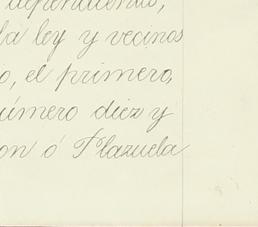 dependiento,
la ley y vecinos
o, el primero,
úmero diez y
on ó Plazuela